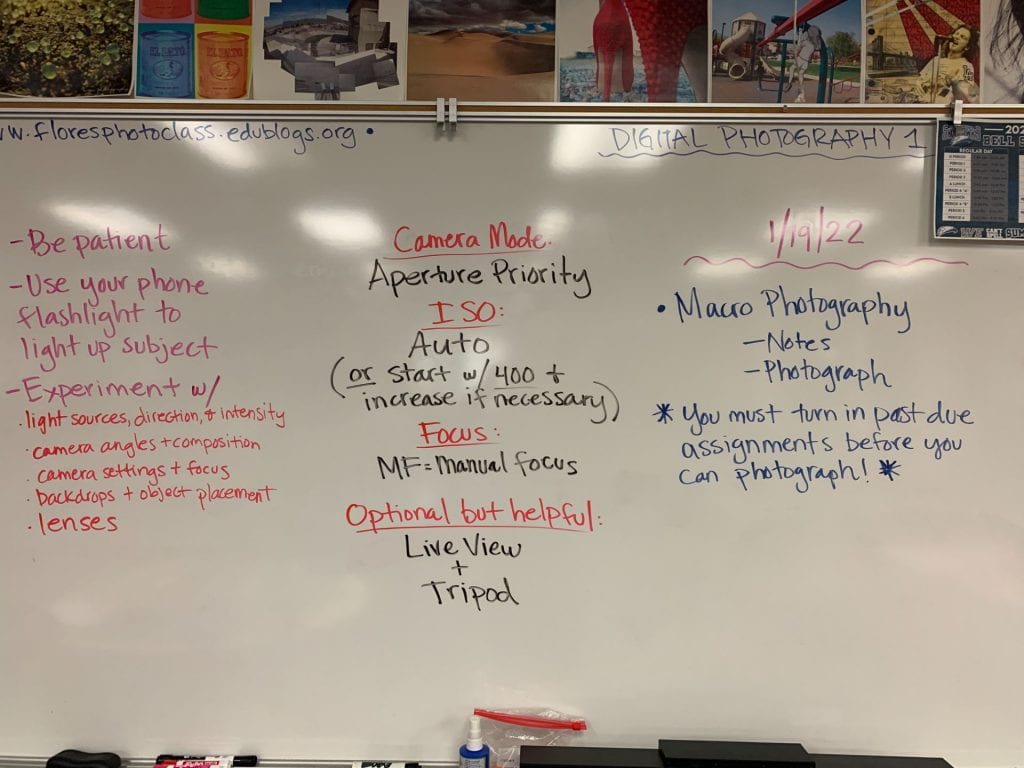 w.floresphotoclass.edublogs.org •
DIGITAL PHOTOGRAPHY 1
- Be patient
- Use your phone
flashlight to
light up subject
- Experiment w/
• light sources, direction, + intensity
• camera angles + composition
camera settings + focus
• backdrops + object placement
• lenses
Camera Mode:
Aperture Priority
ISO:
Auto
(or start w/ 400 +
increase if necessary)
Focus:
MF = Manual focus
Optional but helpful:
Live View
+
Tripod
1/19/22
• Macro Photography
- Notes
- Photograph
* You must turn in past due
assignments before you
can photograph! *
BELL
REGULAR DAY